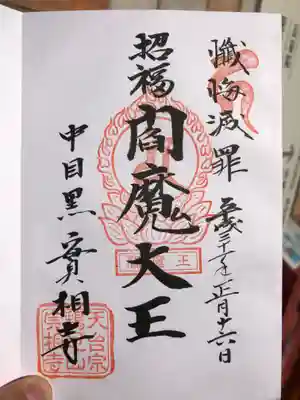 懺悔滅罪
平成三十一年一月十六日
招福
閻魔大王
中目黒
實相寺
王
天台宗